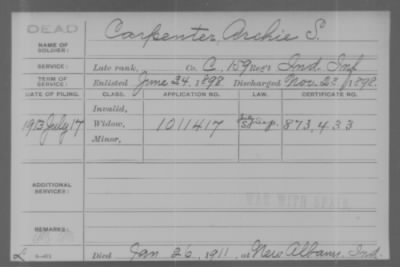 DEAD
NAME OF SOLDIER:
Carpenter, Archie S.
SERVICE:
Late rank, Co. C, 159 Reg't Ind. Inf.
TERM OF SERVICE:
Enlisted June 24, 1898 Discharged Nov. 23, 1898.
DATE OF FILING. CLASS. APPLICATION NO. LAW. CERTIFICATE NO.
Invalid,
1913 July 17 Widow, 1011417 873,433
Minor,
ADDITIONAL SERVICES:
WAR WITH SPAIN
REMARKS:
Died Jan 26, 1911, at New Albany, Ind.